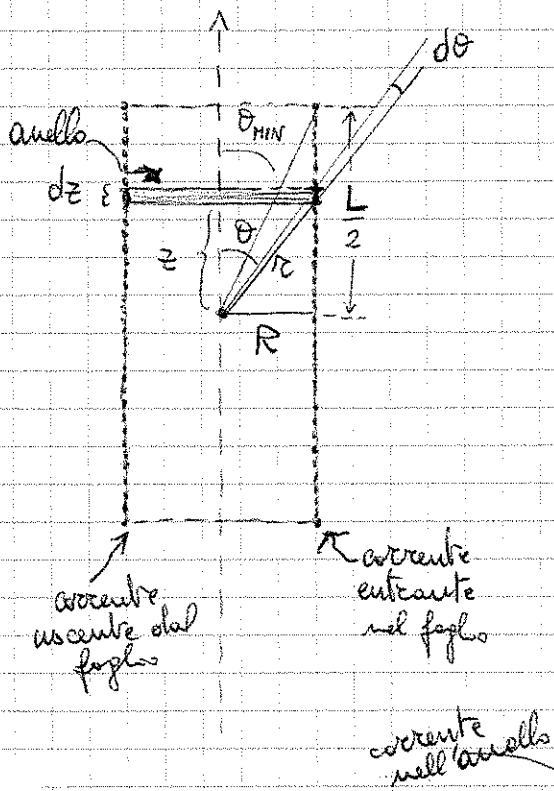 dθ
anello
θ_MIN
dz {
L/2
z {
θ
r
R
corrente
uscente dal
foglio
corrente
entrante
nel foglio
corrente
nell'anello